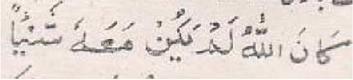 كَانَ اللّٰهُ لَمْ يَكُنْ مَعَهُ شَيْئًا